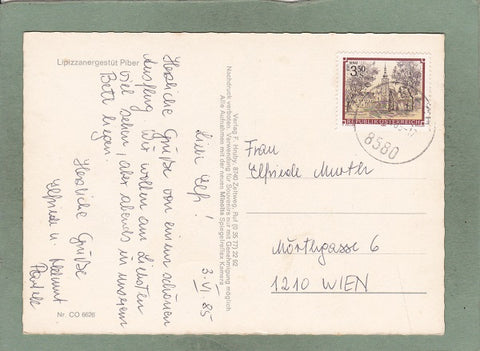 Lipizzanergestüt Piber
3.VI 85
Liebe Elfi!
Herzliche Grüße von einem schönen
Ausflug. Wir wollen am liebsten
viel sehen, aber abends in unserem
Bett liegen.
Herzliche Grüße
Elfriede u. Helmut
Nr. CO 6626
Verlag F. Hruby, 8740 Zeltweg, Ruf (0 35 77) 22 92
Nachdruck verboten. Verwendung für Souvenirs nur mit Genehmigung möglich
Alle Aufnahmen mit der neuen Minolta Spiegelreflex Kamera
3.50
REPUBLIK ÖSTERREICH
8580
Frau
Elfriede Muth
Mörthgasse 6
1210 WIEN